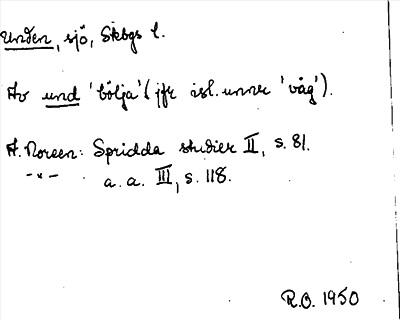 Unden, sjö, Skogs l.
Av und 'bölja' (jfr isl. unnr 'våg').
A. Noreen: Spridda studier II, s. 81.
-"- a. a. III, s. 118.
R.O. 1950